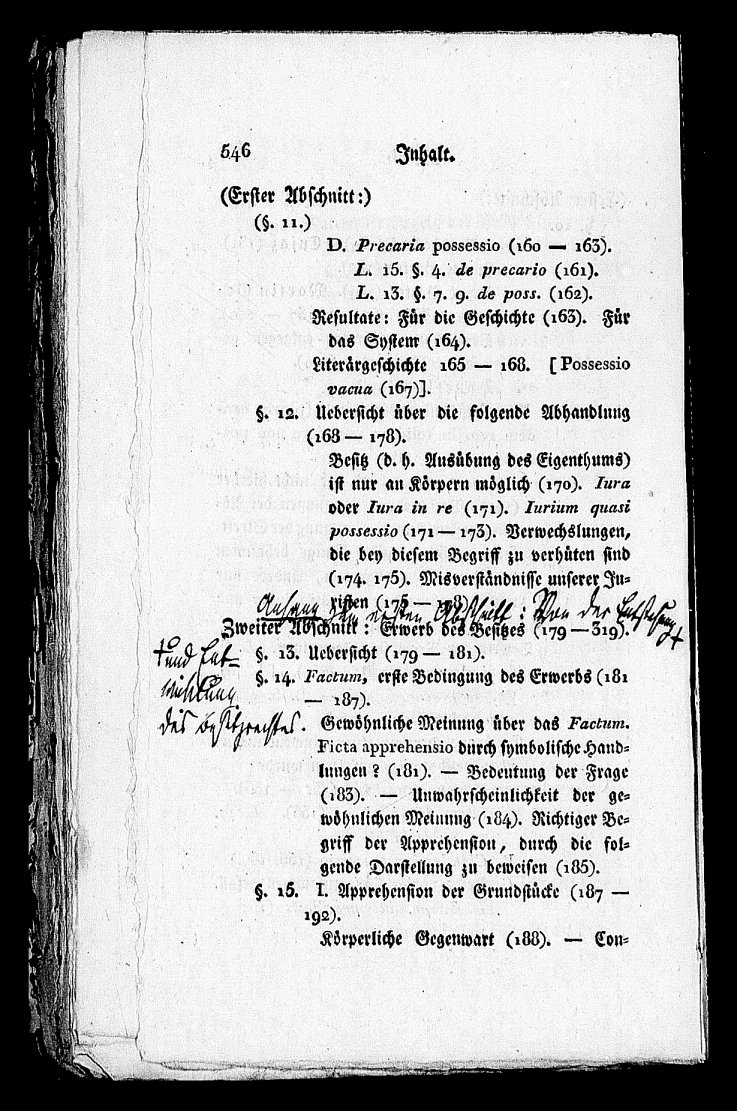 546 Inhalt.
(Erster Abschnitt:)
(§. 11.)
D. Precaria possessio (160 — 163).
L. 15. §. 4. de precario (161).
L. 13. §. 7. 9. de poss. (162).
Resultate: Für die Geschichte (163). Für
das System (164).
Literärgeschichte 165 — 168. [Possessio
vacua (167)].
§. 12. Uebersicht über die folgende Abhandlung
(168 — 178).
Besitz (d. h. Ausübung des Eigenthums)
ist nur an Körpern möglich (170). Iura
oder Iura in re (171). Iurium quasi
possessio (171 — 173). Verwechslungen,
die bey diesem Begriff zu verhüten sind
(174. 175). Misverständnisse unserer Ju-
risten (175 — 178).
Anhang zum ersten Abschnitt: Von der Entstehung +
Zweiter Abschnitt: Erwerb des Besitzes (179 — 319).
+ und Ent-
wicklung
des Besitzrechtes.
§. 13. Uebersicht (179 — 181).
§. 14. Factum, erste Bedingung des Erwerbs (181
— 187).
Gewöhnliche Meinung über das Factum.
Ficta apprehensio durch symbolische Hand-
lungen? (181). — Bedeutung der Frage
(183). — Unwahrscheinlichkeit der ge-
wöhnlichen Meinung (184). Richtiger Be-
griff der Apprehension, durch die fol-
gende Darstellung zu beweisen (185).
§. 15. I. Apprehension der Grundstücke (187 —
192).
Körperliche Gegenwart (188). — Con-